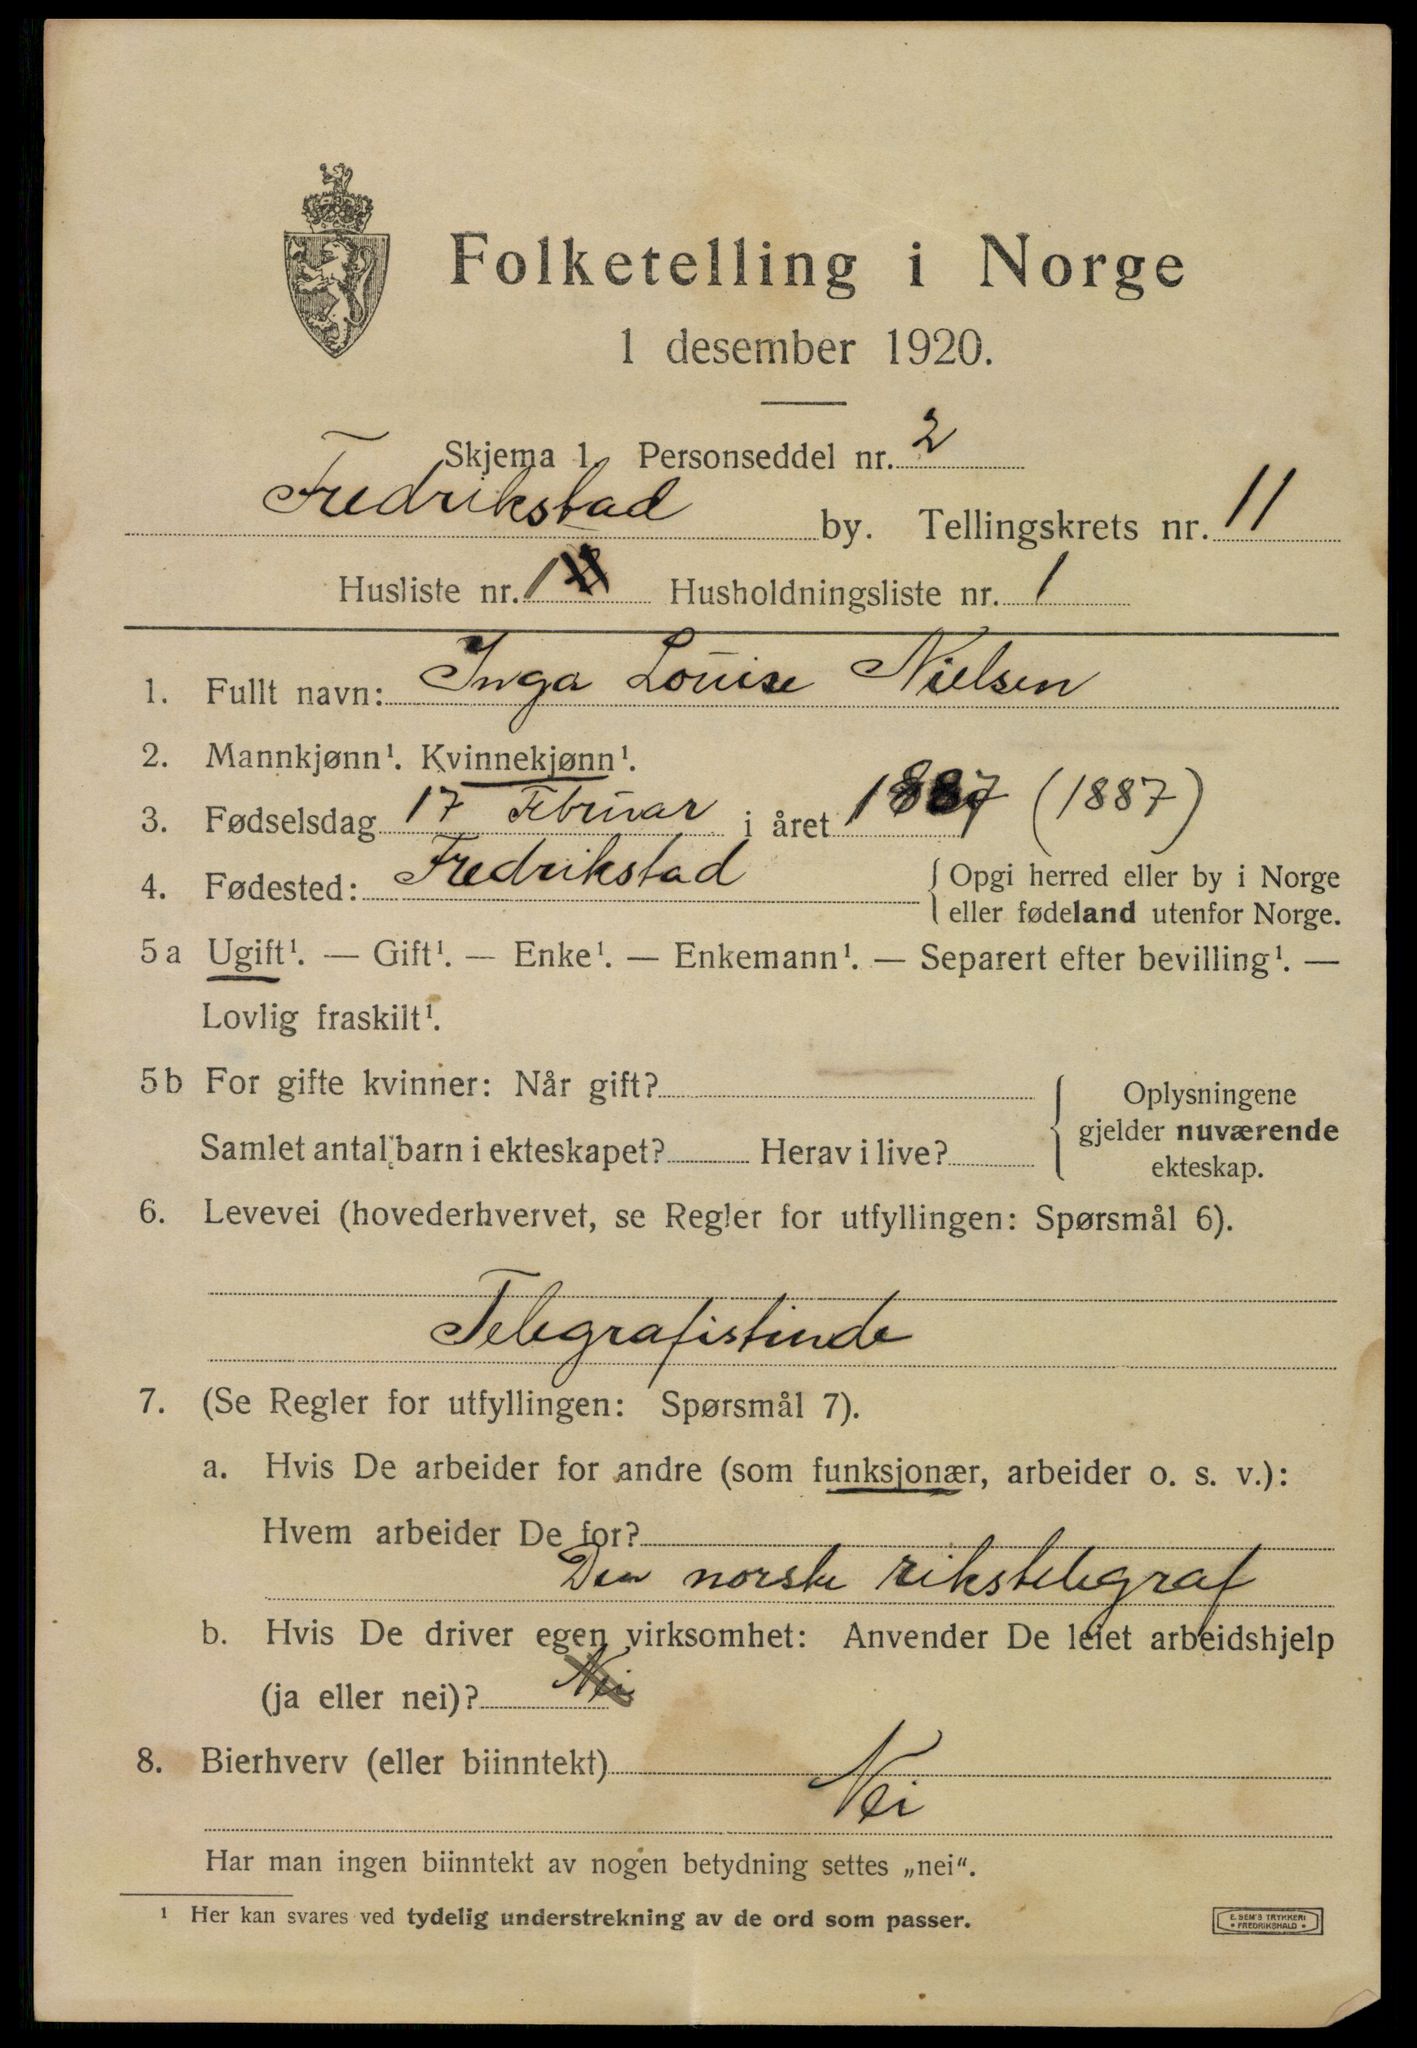 Folketelling i Norge
1 desember 1920.
Skjema 1. Personseddel nr. 2
Fredrikstad by. Tellingskrets nr. 11
Husliste nr. 1 Husholdningsliste nr. 1
1. Fullt navn: Inga Louise Nielsen
2. Mannkjønn¹. Kvinnekjønn¹.
3. Fødselsdag 17 Februar i året 1887 (1887)
4. Fødested: Fredrikstad { Opgi herred eller by i Norge
eller fødeland utenfor Norge.
5a Ugift¹. — Gift¹. — Enke¹. — Enkemann¹. — Separert efter bevilling¹. —
Lovlig fraskilt¹.
5b For gifte kvinner: Når gift? { Oplysningene
gjelder nuværende
ekteskap.
Samlet antal barn i ekteskapet? Herav i live?
6. Levevei (hovederhvervet, se Regler for utfyllingen: Spørsmål 6).
Telegrafistinde
7. (Se Regler for utfyllingen: Spørsmål 7).
a. Hvis De arbeider for andre (som funksjonær, arbeider o. s. v.):
Hvem arbeider De for?
Den norske rikstelegraf
b. Hvis De driver egen virksomhet: Anvender De leiet arbeidshjelp
(ja eller nei)? Nei
8. Bierhverv (eller biinntekt)
Nei
Har man ingen biinntekt av nogen betydning settes „nei“.
¹ Her kan svares ved tydelig understrekning av de ord som passer.
E. SEM'S TRYKKERI
• FREDRIKSHALD •